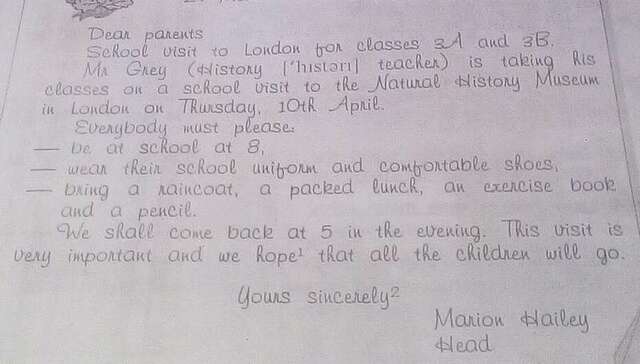 Dear parents
School visit to London for classes 3A and 3B.
Mr Grey (History ['hɪstərɪ] teacher) is taking his
classes on a school visit to the Natural History Museum
in London on Thursday, 10th April.
Everybody must please:
— be at school at 8,
— wear their school uniform and comfortable shoes,
— bring a raincoat, a packed lunch, an exercise book
and a pencil.
We shall come back at 5 in the evening. This visit is
very important and we hope¹ that all the children will go.
Yours sincerely²
Marion Hailey
Head